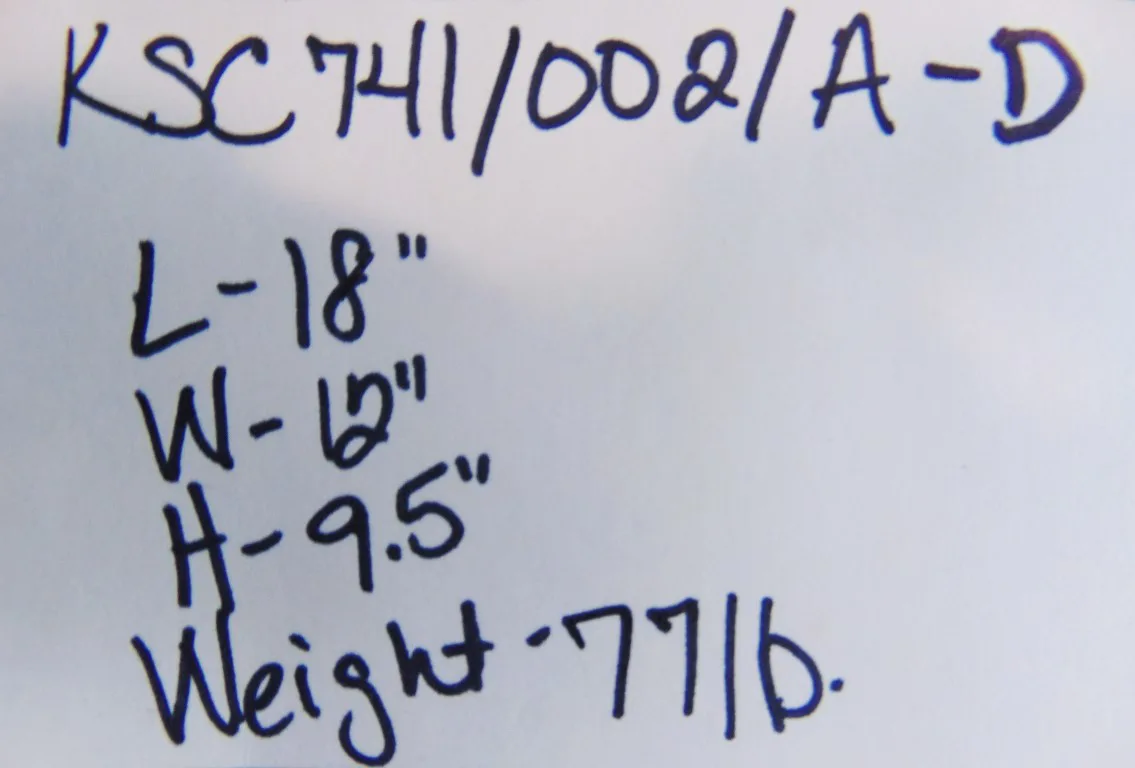 KSC741/002/A-D
L-18"
W-12"
H-9.5"
Weight-77lb.